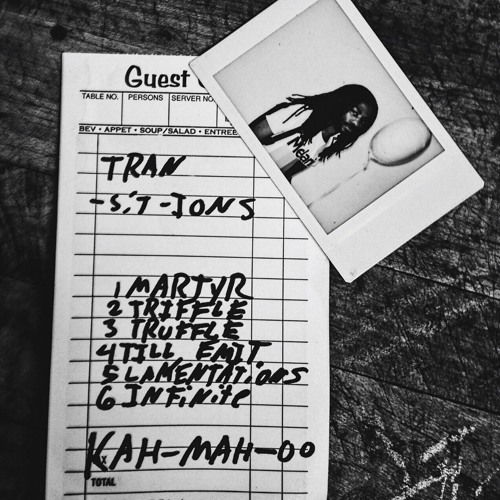 Guest
TABLE NO. PERSONS SERVER NO.
BEV • APPET • SOUP/SALAD • ENTREE
TRAN
-SIT-IONS
1 MARTYR
2 TRIFFLE
3 TRUFFLE
4 TILL EMIT
5 LAMENTATIONS
6 INFiNite
KAH-MAH-OO
TOTAL